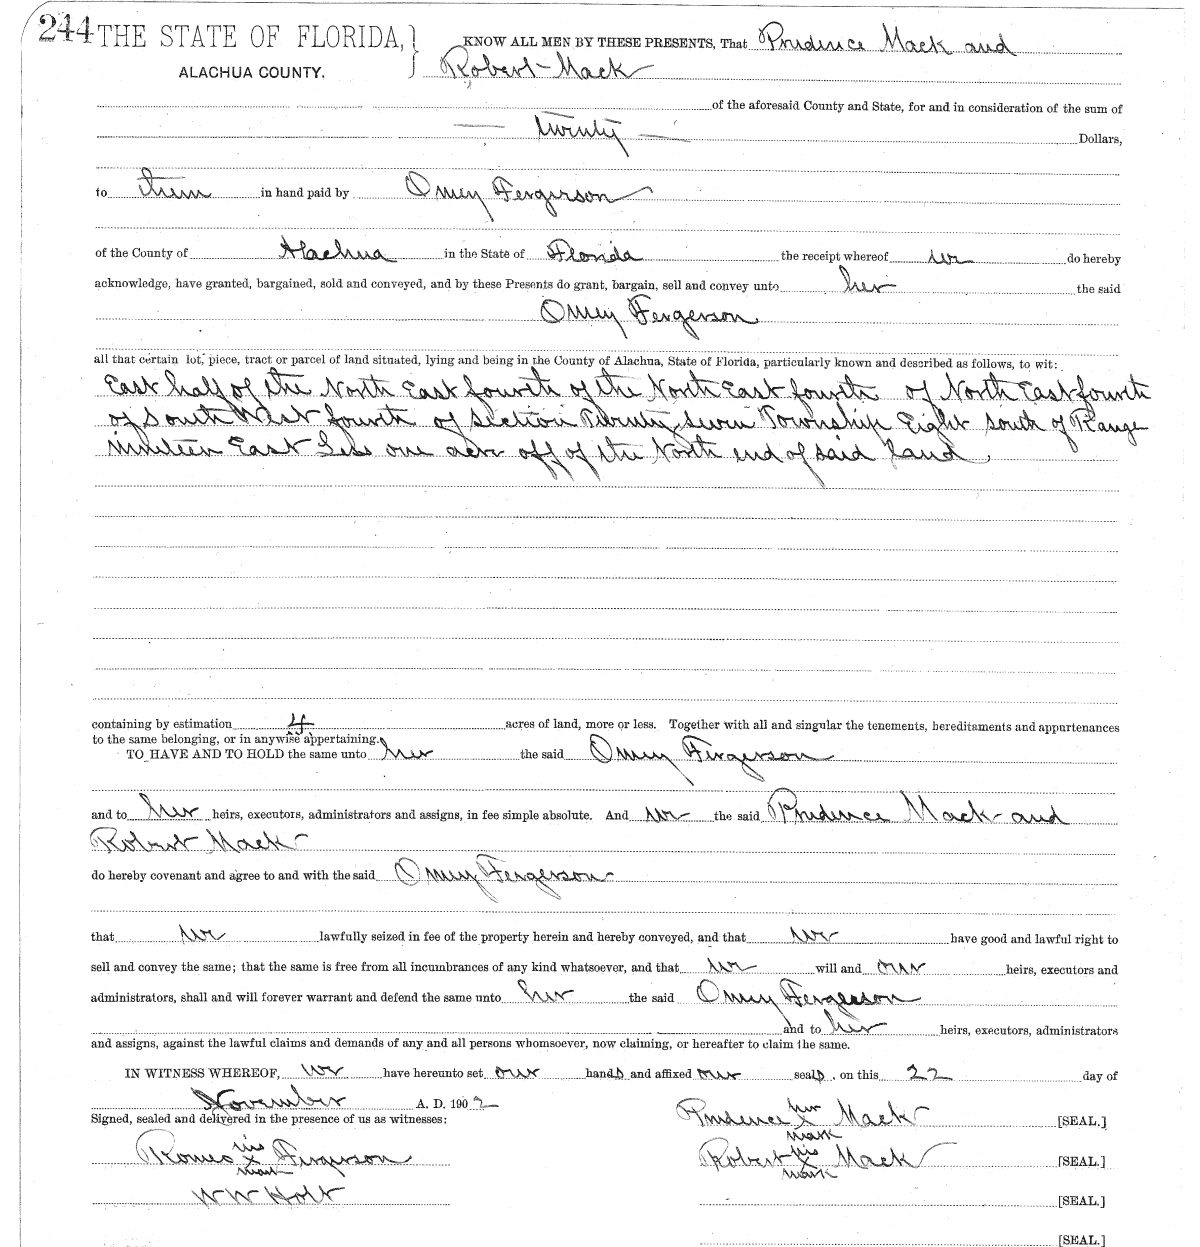 244 THE STATE OF FLORIDA,} KNOW ALL MEN BY THESE PRESENTS, That Prudence Mack and
ALACHUA COUNTY. Robert Mack
of the aforesaid County and State, for and in consideration of the sum of
twenty Dollars,
to them in hand paid by Omey Fergerson
of the County of Alachua in the State of Florida the receipt whereof we do hereby
acknowledge, have granted, bargained, sold and conveyed, and by these Presents do grant, bargain, sell and convey unto her the said
Omey Fergerson
all that certain lot, piece, tract or parcel of land situated, lying and being in the County of Alachua, State of Florida, particularly known and described as follows, to wit:
East half of the North East fourth of the North East fourth of North East fourth
of South West fourth of Section Twenty seven Township Eight south of Range
nineteen East Less one acre off of the North end of said land
containing by estimation 4 acres of land, more or less. Together with all and singular the tenements, hereditaments and appurtenances
to the same belonging, or in anywise appertaining.
TO HAVE AND TO HOLD the same unto her the said Omey Fergerson
and to her heirs, executors, administrators and assigns, in fee simple absolute. And we the said Prudence Mack and
Robert Mack
do hereby covenant and agree to and with the said Omey Fergerson
that we lawfully seized in fee of the property herein and hereby conveyed, and that we have good and lawful right to
sell and convey the same; that the same is free from all incumbrances of any kind whatsoever, and that we will and our heirs, executors and
administrators, shall and will forever warrant and defend the same unto her the said Omey Fergerson
and to her heirs, executors, administrators
and assigns, against the lawful claims and demands of any and all persons whomsoever, now claiming, or hereafter to claim the same.
IN WITNESS WHEREOF, we have hereunto set our hands and affixed our seals, on this 22 day of
November A. D. 1902
Signed, sealed and delivered in the presence of us as witnesses: Prudence her x mark Mack [SEAL.]
Romeo his x mark Fergerson Robert his x mark Mack [SEAL.]
W W Holt [SEAL.]
[SEAL.]